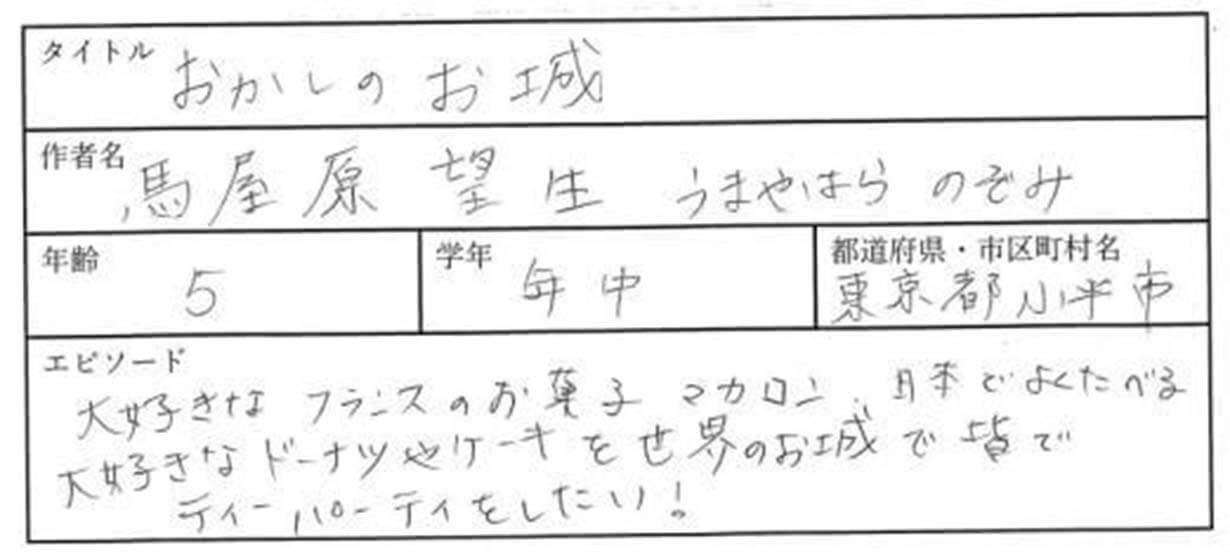 タイトル おかしのお城
作者名 馬屋原 望生 うまやはら のぞみ
年齢 5 学年 年中 都道府県・市区町村名 東京都小平市
エピソード
大好きな フランスのお菓子 マカロン、日本でよくたべる
大好きなドーナツやケーキを世界のお城で皆で
ティーパーティをしたい!